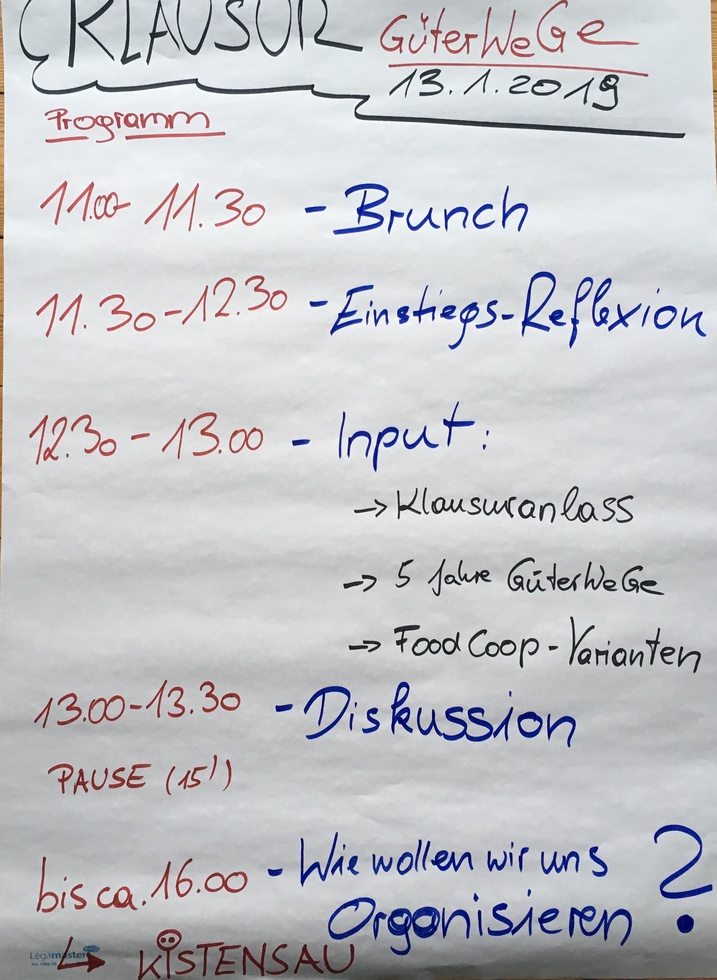 KLAUSUR GüterWeGe
13.1.2019
Programm
11.00- 11.30 - Brunch
11.30-12.30 - Einstiegs-Reflexion
12.30 - 13.00 - Input:
-> Klausuranlass
-> 5 Jahre GüterWeGe
-> FoodCoop-Varianten
13.00-13.30 - Diskussion
PAUSE (15')
bis ca. 16.00 - Wie wollen wir uns
Organisieren ?
Legamaster
KISTENSAU